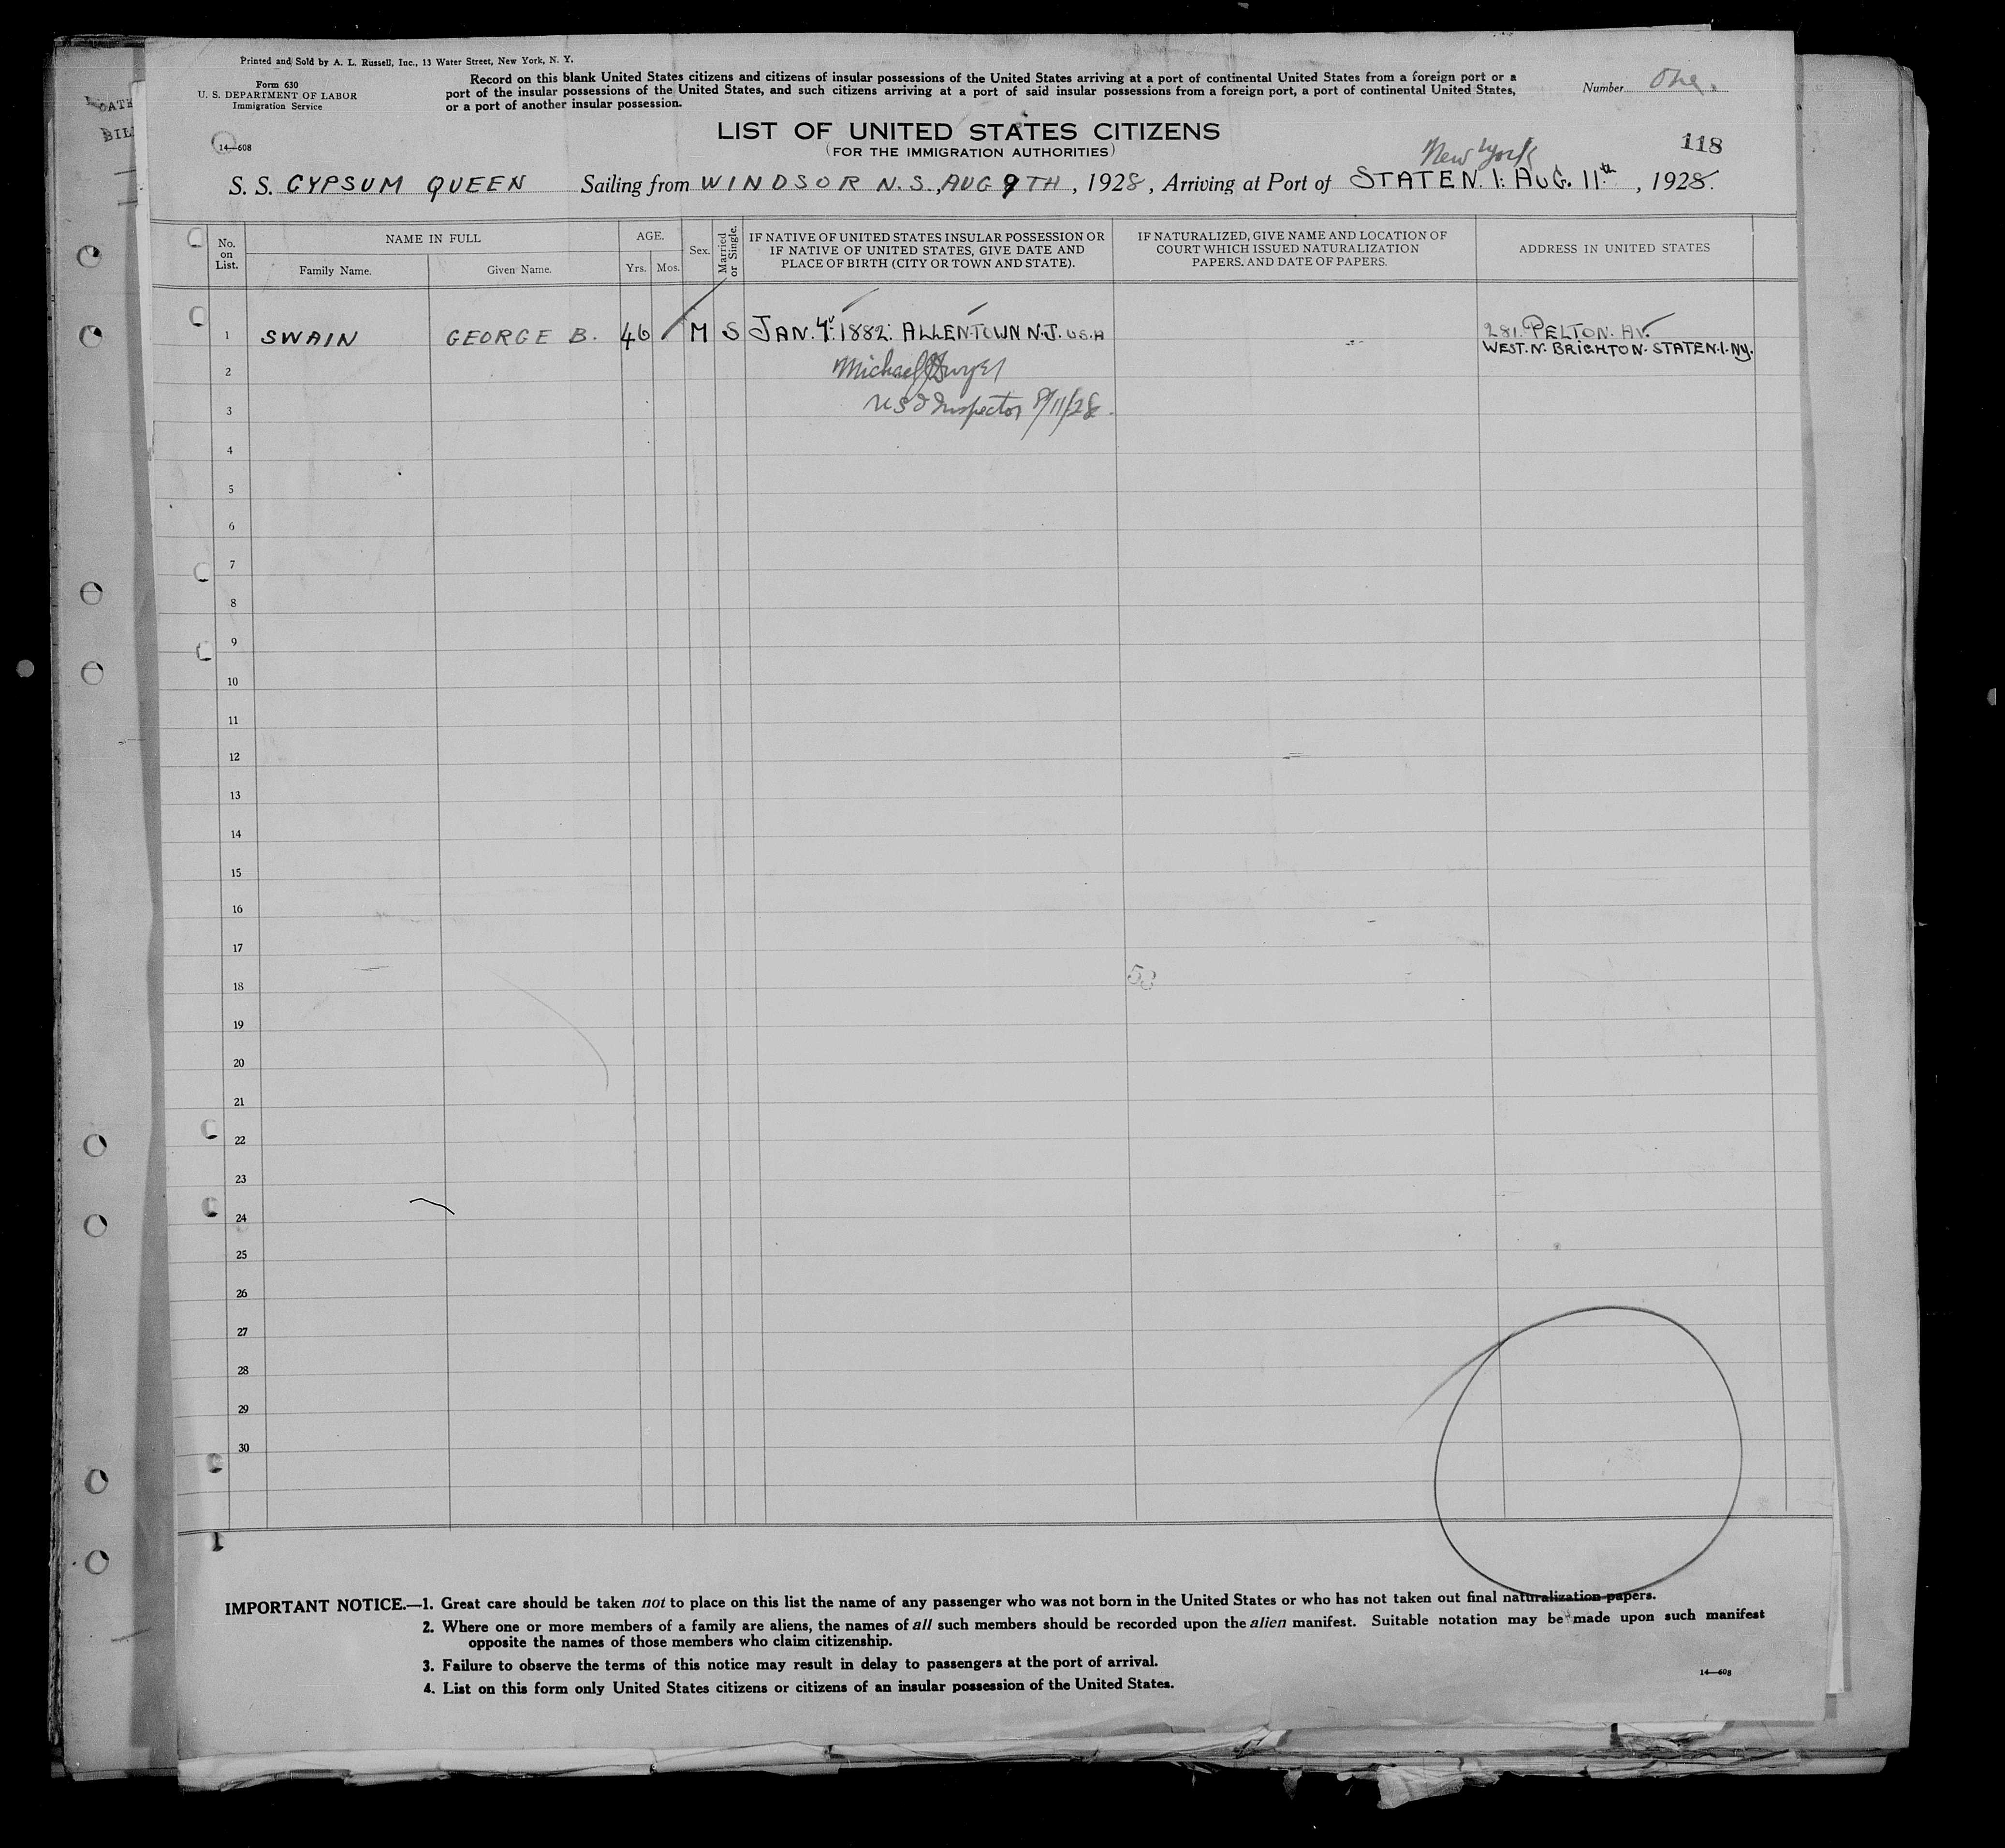 DATE
BIL
Printed and Sold by A. L. Russell, Inc., 13 Water Street, New York, N. Y.
Form 630
U. S. DEPARTMENT OF LABOR
Immigration Service
14—608
Record on this blank United States citizens and citizens of insular possessions of the United States arriving at a port of continental United States from a foreign port or a
port of the insular possessions of the United States, and such citizens arriving at a port of said insular possessions from a foreign port, a port of continental United States,
or a port of another insular possession.
Number One.
118
LIST OF UNITED STATES CITIZENS
(FOR THE IMMIGRATION AUTHORITIES)
New York
S. S. GYPSUM QUEEN Sailing from WINDSOR N.S., AUG 9TH, 1928, Arriving at Port of STATEN. I: AUG. 11th, 1928.
No. on List.
NAME IN FULL
Family Name. Given Name.
AGE.
Yrs. Mos.
Sex.
Married or Single.
IF NATIVE OF UNITED STATES INSULAR POSSESSION OR
IF NATIVE OF UNITED STATES, GIVE DATE AND
PLACE OF BIRTH (CITY OR TOWN AND STATE).
IF NATURALIZED, GIVE NAME AND LOCATION OF
COURT WHICH ISSUED NATURALIZATION
PAPERS, AND DATE OF PAPERS.
ADDRESS IN UNITED STATES
1 SWAIN GEORGE B. 46 M S JAN. 4. 1882: ALLENTOWN N.J. U.S.A 281. PELTON. AV.
WEST. N. BRIGHTON. STATEN. I. NY.
2 Michael Dwyer
3 USI Inspector 8/11/28.
4
5
6
7
8
9
10
11
12
13
14
15
16
17
53
18
19
20
21
22
23
24
25
26
27
28
29
30
IMPORTANT NOTICE.—1. Great care should be taken not to place on this list the name of any passenger who was not born in the United States or who has not taken out final naturalization papers.
2. Where one or more members of a family are aliens, the names of all such members should be recorded upon the alien manifest. Suitable notation may be made upon such manifest
opposite the names of those members who claim citizenship.
3. Failure to observe the terms of this notice may result in delay to passengers at the port of arrival.
4. List on this form only United States citizens or citizens of an insular possession of the United States.
14—608